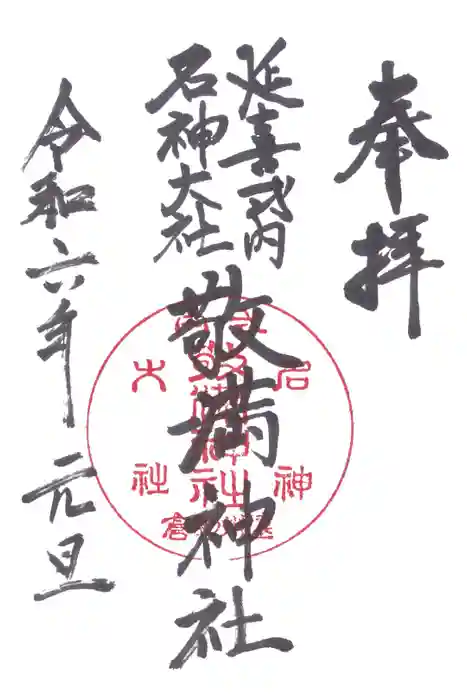 奉拝
延喜式内
名神大社
敬満神社
令和六年 元旦
名神
大社
敬満神社